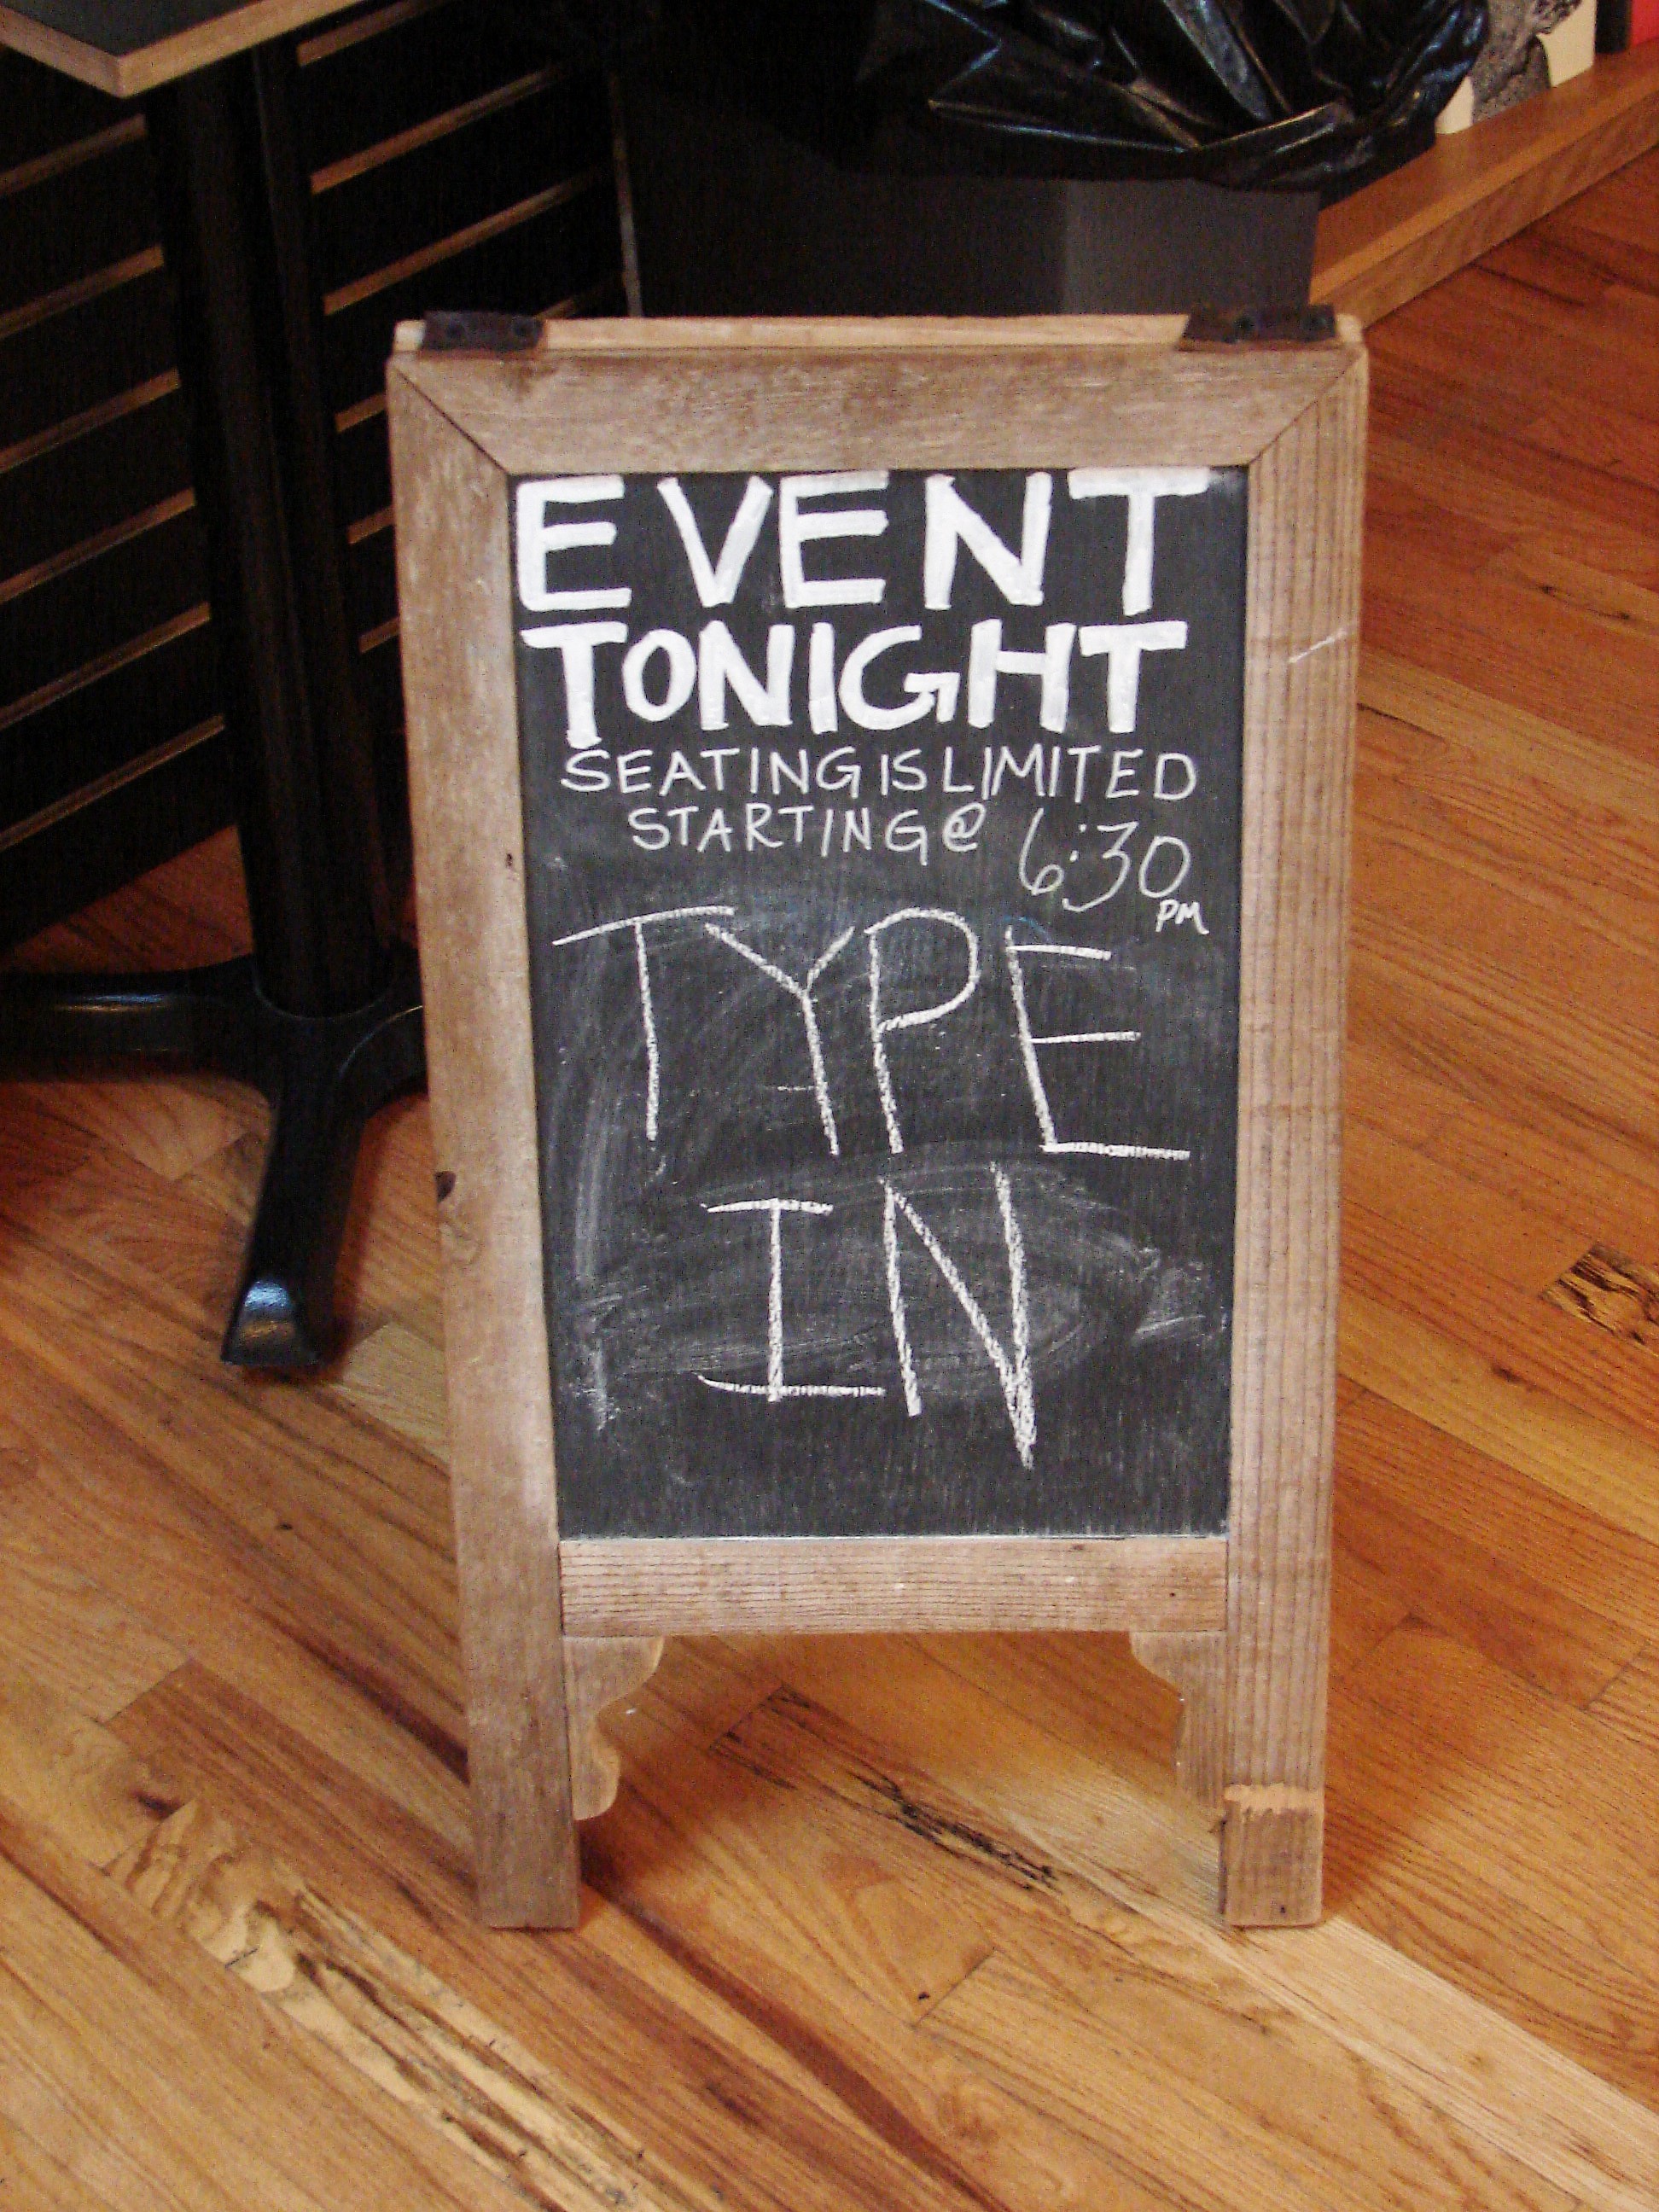 EVENT
TONIGHT
SEATING IS LIMITED
STARTING @ 6:30
PM
TYPE
IN